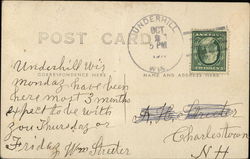 POST CARD
UNDERHILL
OCT
5 PM
WIS.
Underhill Wis
CORRESPONDENCE HERE
NAME AND ADDRESS HERE
Monday have been
here most 3 months
expect to be with
you Thursday or
Friday Wm Streeter
Streeter
Charlestown
N H